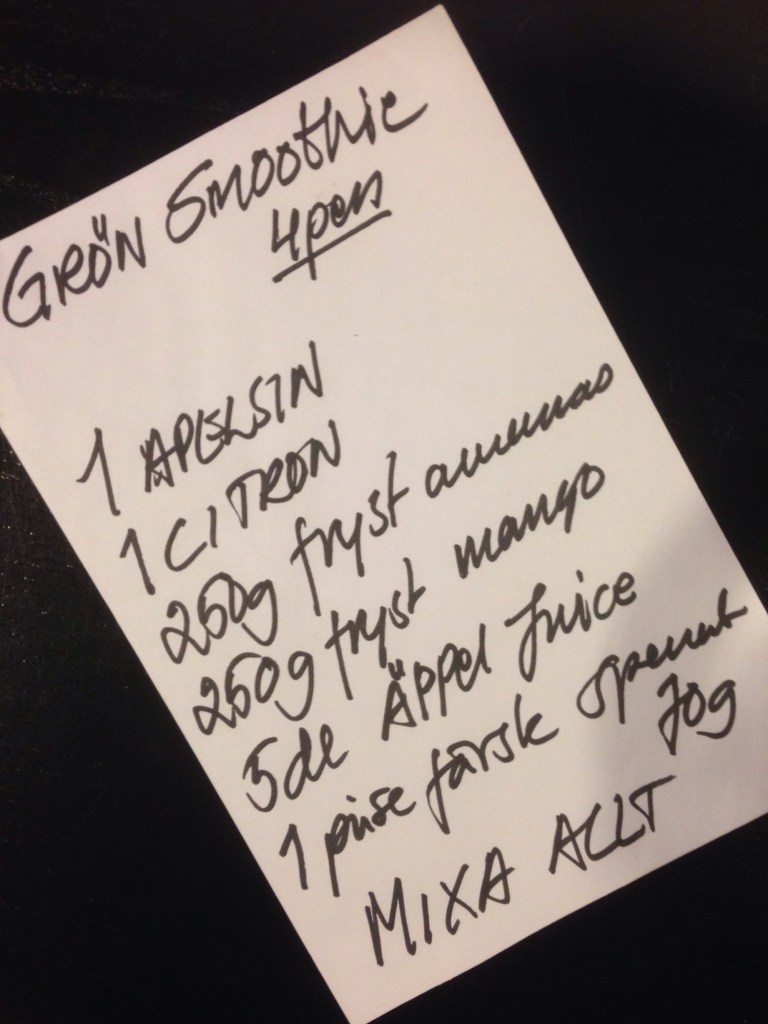 GRÖN Smoothie
4 pers
1 APELSIN
1 CITRON
250g fryst ananas
250g fryst mango
5 dl ÄPPEL Juice
1 påse färsk spenat
70g
MIXA ALLT